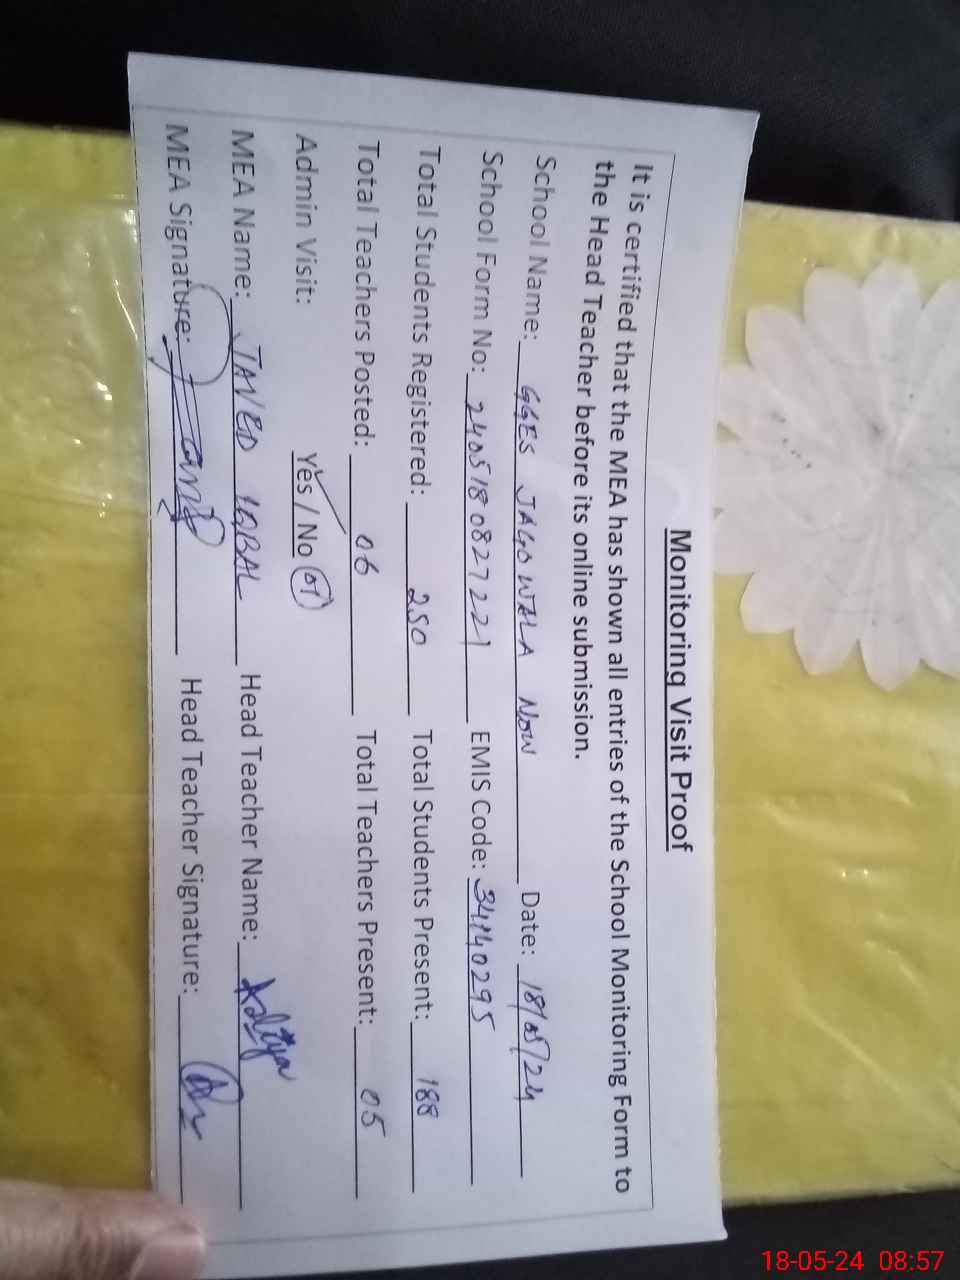 Monitoring Visit Proof
It is certified that the MEA has shown all entries of the School Monitoring Form to
the Head Teacher before its online submission.
School Name: GGES JAGOWALA NOW Date: 18/05/24
School Form No: 2405180827221 EMIS Code: 34140295
Total Students Registered: 250 Total Students Present: 188
Total Teachers Posted: 06 Total Teachers Present: 05
Admin Visit: Yes / No 01
MEA Name: JAVED IQBAL Head Teacher Name:
MEA Signature: Head Teacher Signature:
18-05-24 08:57